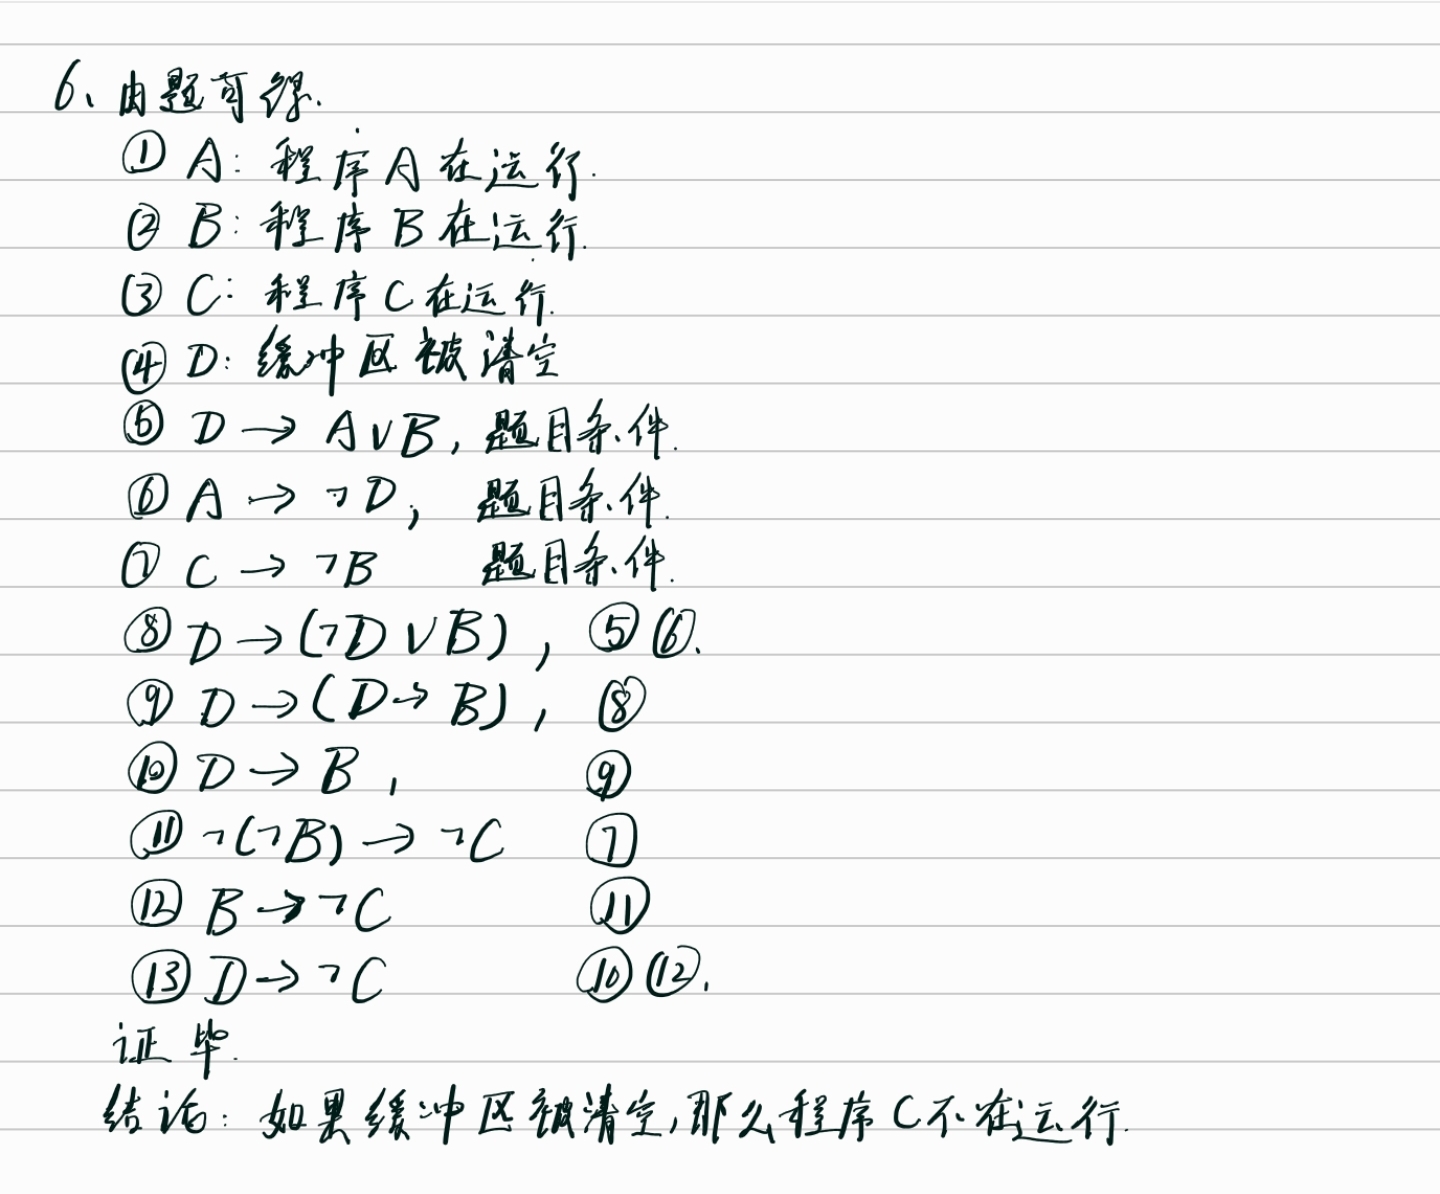 6、由题可得.
① A: 程序A在运行.
② B: 程序B在运行.
③ C: 程序C在运行.
④ D: 缓冲区被清空
⑤ D → A∨B, 题目条件.
⑥ A → ¬D, 题目条件.
⑦ C → ¬B 题目条件.
⑧ D → (¬D ∨ B), ⑤⑥.
⑨ D → (D → B), ⑧
⑩ D → B, ⑨
⑪ ¬(¬B) → ¬C ⑦
⑫ B → ¬C ⑪
⑬ D → ¬C ⑩⑫.
证毕.
结论: 如果缓冲区被清空,那么程序C不在运行.